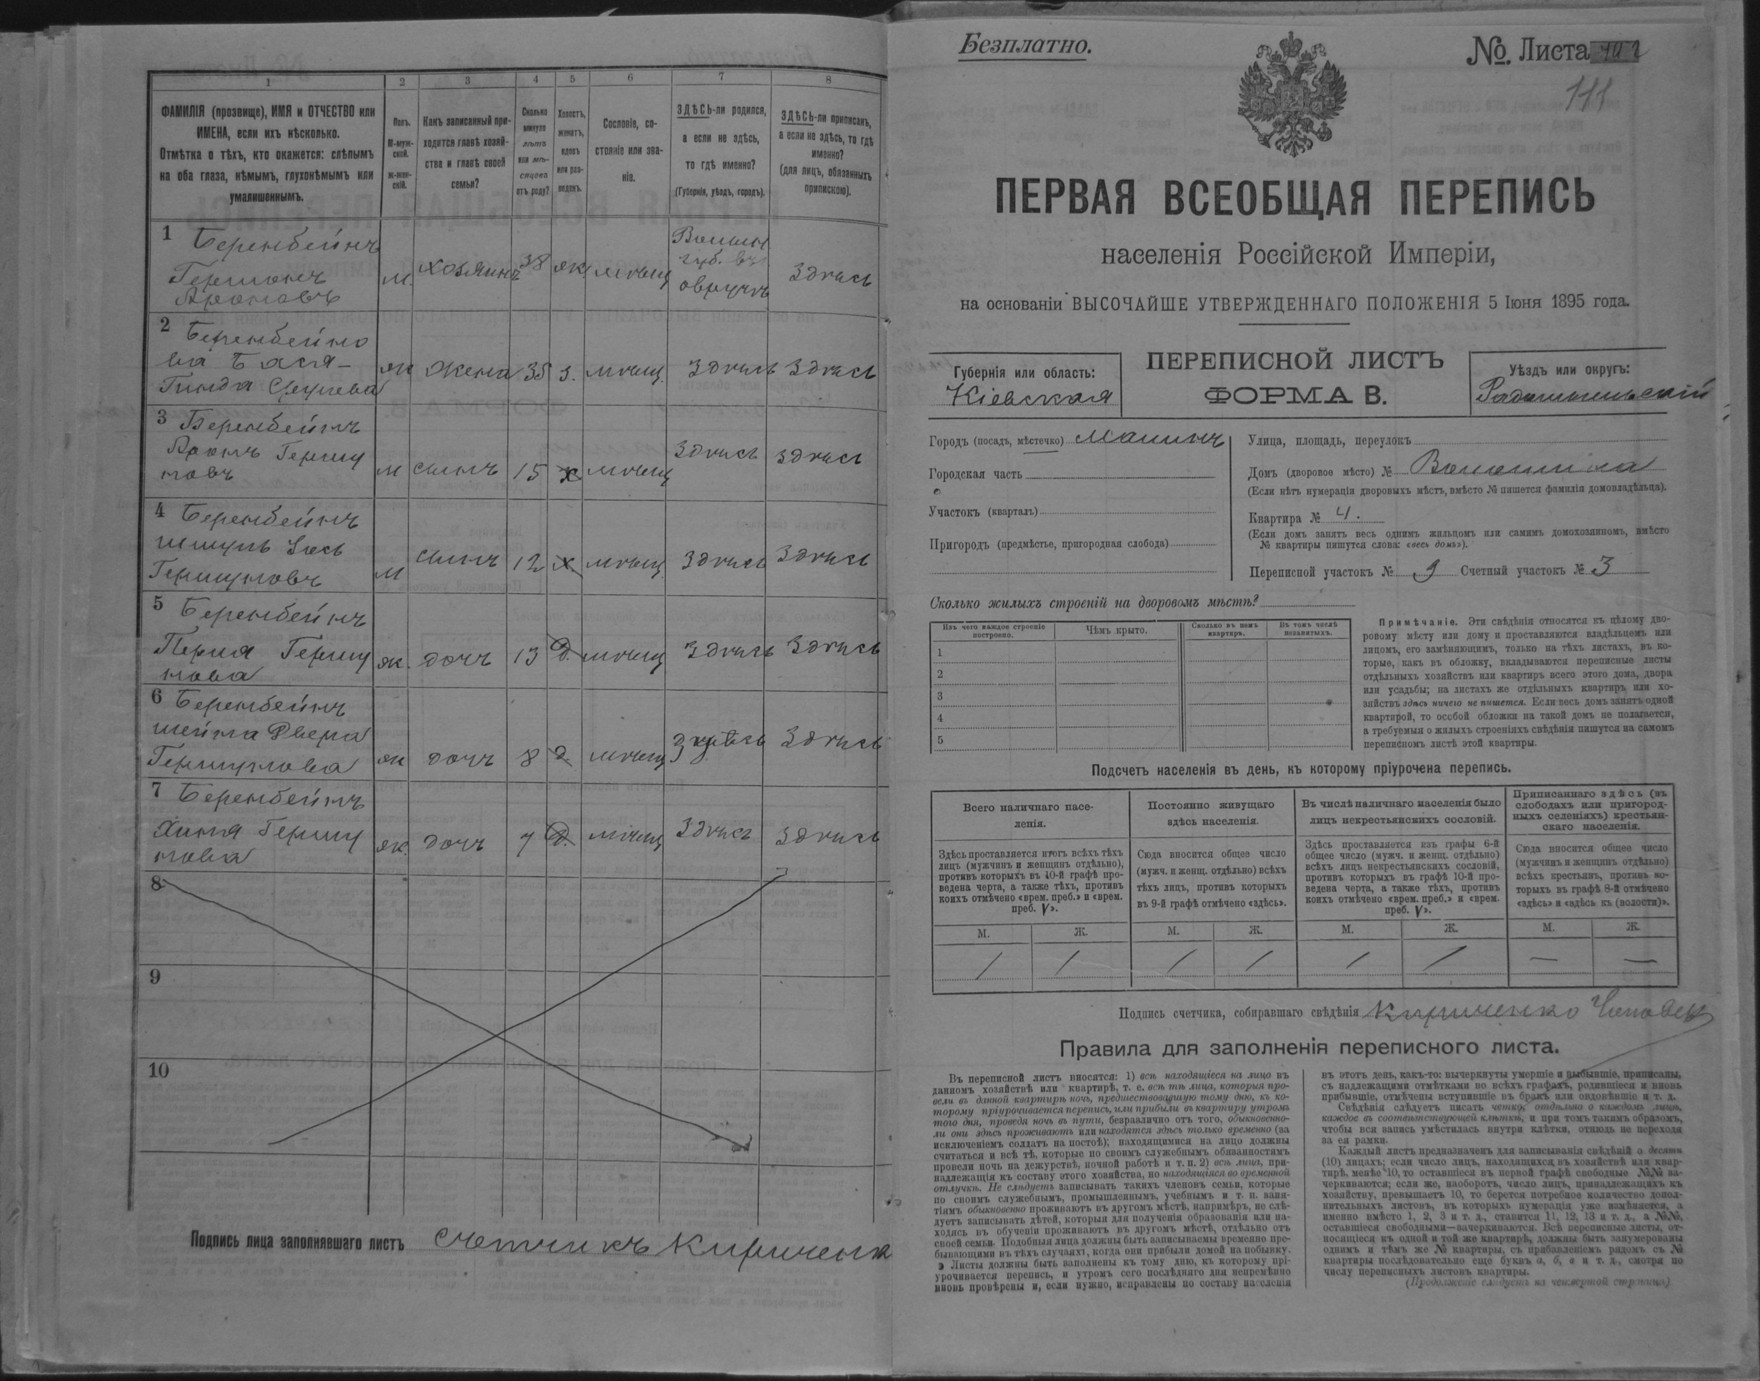 1 2 3 4 5 6 7 8
ФАМИЛІЯ (прозвище), ИМЯ и ОТЧЕСТВО или
ИМЕНА, если ихъ нѣсколько.
Отмѣтка о тѣхъ, кто окажется: слѣпымъ
на оба глаза, нѣмымъ, глухонѣмымъ или
умалишеннымъ.
Полъ.
М-муж-
ской.
ж-жен-
скій.
Какъ записанный при-
ходится главѣ хозяй-
ства и главѣ своей
семьи?
Сколько
минуло
лѣтъ
или мѣ-
сяцевъ
отъ роду?
Холостъ,
женатъ,
вдовъ
или раз-
веденъ.
Сословіе, со-
стояніе или зва-
ніе.
ЗДѢСЬ-ли родился,
а если не здѣсь,
то гдѣ именно?
(Губернія, уѣздъ, городъ).
ЗДѢСЬ-ли приписанъ,
а если не здѣсь, то гдѣ
именно?
(для лицъ, обязанныхъ
припискою).
1 Беренбейнъ
Гершонъ
Ароновъ
м. хозяинъ 38 ж мѣщ
Волын
губ. въ
овручѣ
Здѣсь
2 Беренбейно
ва Бася-
Гинда
ж жена 35 з. мѣщ. Здѣсь Здѣсь
3 Беренбейнъ
Аронъ Гершу
новъ
м сынъ 15 х мѣщ Здѣсь Здѣсь
4 Беренбейнъ
Шмуль
Гершуновъ
м сынъ 12 х мѣщ Здѣсь Здѣсь
5 Беренбейнъ
Перля Гершу
нова
ж. дочь 13 д. мѣщ Здѣсь Здѣсь
6 Беренбейнъ
Шейна Двера
Гершунова
ж дочь 8 д. мѣщ Здѣсь Здѣсь
7 Беренбейнъ
Хиня Гершу
нова
ж. дочь 7 д. мѣщ Здѣсь Здѣсь
8
9
10
Подпись лица заполнявшаго листъ счетчикъ Кириченко
Безплатно.
№. Листа
111
ПЕРВАЯ ВСЕОБЩАЯ ПЕРЕПИСЬ
населенія Россійской Имперіи,
на основаніи ВЫСОЧАЙШЕ УТВЕРЖДЕННАГО ПОЛОЖЕНІЯ 5 Іюня 1895 года.
Губернія или область:
Кіевская
ПЕРЕПИСНОЙ ЛИСТЪ
ФОРМА В.
Уѣздъ или округъ:
Радомысльскій
Городъ (посадъ, мѣстечко) Малинъ
Городская часть
Участокъ (кварталъ)
Пригородъ (предмѣстье, пригородная слобода)
Улица, площадь, переулокъ
Домъ (дворовое мѣсто) №
(Если нѣтъ нумераціи дворовыхъ мѣстъ, вмѣсто № пишется фамилія домовладѣльца).
Квартира № 4.
(Если домъ занятъ весь однимъ жильцомъ или самимъ домохозяиномъ, вмѣсто
№ квартиры пишутся слова: «весь домъ»).
Переписной участокъ № 9 Счетный участокъ № 3
Сколько жилыхъ строеній на дворовомъ мѣстѣ?
Изъ чего каждое строеніе
построено.
Чѣмъ крыто.
Сколько въ немъ
квартиръ.
Въ томъ числѣ
незанятыхъ.
1
2
3
4
5
Примѣчаніе. Эти свѣдѣнія относятся къ цѣлому дво-
ровому мѣсту или дому и проставляются владѣльцемъ или
лицомъ, его замѣняющимъ, только на тѣхъ листахъ, въ ко-
торые, какъ въ обложку, вкладываются переписные листы
отдѣльныхъ хозяйствъ или квартиръ всего этого дома, двора
или усадьбы; на листахъ же отдѣльныхъ квартиръ или хо-
зяйствъ здѣсь ничего не пишется. Если весь домъ занятъ одной
квартирой, то особой обложки на такой домъ не полагается,
а требуемыя о жилыхъ строеніяхъ свѣдѣнія пишутся на самомъ
переписномъ листѣ этой квартиры.
Подсчетъ населенія въ день, къ которому пріурочена перепись.
Всего наличнаго насе-
ленія.
Постоянно живущаго
здѣсь населенія.
Въ числѣ наличнаго населенія было
лицъ некрестьянскихъ сословій.
Приписаннаго здѣсь (въ
слободахъ или пригород-
ныхъ селеніяхъ) крестьян-
скаго населенія.
Здѣсь проставляется итогъ всѣхъ тѣхъ
лицъ (мужчинъ и женщинъ отдѣльно),
противъ которыхъ въ 10-й графѣ про-
ведена черта, а также тѣхъ, противъ
коихъ отмѣчено «врем. преб.» и «врем.
преб. V».
Сюда вносится общее число
(мужч. и женщ. отдѣльно) всѣхъ
тѣхъ лицъ, противъ которыхъ
въ 9-й графѣ отмѣчено «здѣсь».
Здѣсь проставляется изъ графы 6-й
общее число (мужч. и женщ. отдѣльно)
всѣхъ лицъ некрестьянскихъ сословій,
противъ которыхъ въ графѣ 10-й про-
ведена черта, а также тѣхъ, противъ
коихъ отмѣчено «врем. преб.» и «врем.
преб. V».
Сюда вносится общее число
(мужчинъ и женщинъ отдѣльно)
всѣхъ крестьянъ, противъ ко-
торыхъ въ графѣ 8-й отмѣчено
«здѣсь» и «здѣсь къ (волости)».
М. Ж. М. Ж. М. Ж. М. Ж.
/ / / / / / — —
Подпись счетчика, собиравшаго свѣдѣнія Кириченко
Правила для заполненія переписного листа.
Въ переписной листъ вносятся: 1) всѣ находящіеся на лицо въ
данномъ хозяйствѣ или квартирѣ, т. е. всѣ тѣ лица, которыя про-
вели въ данной квартирѣ ночь, предшествовавшую тому дню, къ ко-
торому пріурочивается перепись, или прибыли въ квартиру утромъ
того дня, проведя ночь въ пути, безразлично отъ того, обыкновенно-
ли они здѣсь проживаютъ или находятся здѣсь только временно (за
исключеніемъ солдатъ на постоѣ); находящимися на лицо должны
считаться и всѣ тѣ, которые по своимъ служебнымъ обязанностямъ
провели ночь на дежурствѣ, ночной работѣ и т. п. 2) всѣ лица, при-
надлежащія къ составу этого хозяйства, но находящіяся во временной
отлучкѣ. Не слѣдуетъ записывать такихъ членовъ семьи, которые
по своимъ служебнымъ, промышленнымъ, учебнымъ и т. п. заня-
тіямъ обыкновенно проживаютъ въ другомъ мѣстѣ, напримѣръ, не слѣ-
дуетъ записывать дѣтей, которыя для полученія образованія или на-
ходясь въ обученіи проживаютъ въ другомъ мѣстѣ, отдѣльно отъ
своей семьи. Подобныя лица должны быть записываемы временно пре-
бывающими въ тѣхъ случаяхъ, когда они прибыли домой на побывку.
Листы должны быть заполнены къ тому дню, къ которому прі-
урочивается перепись, и утромъ сего послѣдняго дня непремѣнно
вновь провѣрены и, если нужно, исправлены по составу населенія
въ этотъ день, какъ-то: вычеркнуты умершіе и выбывшіе, приписаны,
съ надлежащими отмѣтками во всѣхъ графахъ, родившіеся и вновь
прибывшіе, отмѣчены вступившіе въ бракъ или овдовѣвшіе и т. д.
Свѣдѣнія слѣдуетъ писать четко, отдѣльно о каждомъ лицѣ,
каждое въ соотвѣтствующей клѣткѣ, и при томъ такимъ образомъ,
чтобы вся запись умѣстилась внутри клѣтки, отнюдь не переходя
за ея рамки.
Каждый листъ предназначенъ для записыванія свѣдѣній о десяти
(10) лицахъ; если число лицъ, находящихся въ хозяйствѣ или квар-
тирѣ, менѣе 10, то оставшіеся въ первой графѣ свободные №№ за-
черкиваются; если же, наоборотъ, число лицъ, принадлежащихъ къ
хозяйству, превышаетъ 10, то берется потребное количество допол-
нительныхъ листовъ, въ которыхъ нумерація уже измѣняется, а
именно вмѣсто 1, 2, 3 и т. д., ставится 11, 12, 13 и т. д., а №№,
оставшіеся свободными—зачеркиваются. Всѣ переписные листы, от-
носящіеся къ одной и той же квартирѣ, должны быть занумерованы
однимъ и тѣмъ же № квартиры, съ прибавленіемъ рядомъ съ №
квартиры послѣдовательно еще буквъ а, б, в и т. д., смотря по
числу переписныхъ листовъ квартиры.
(Продолженіе слѣдуетъ на четвертой страницѣ)